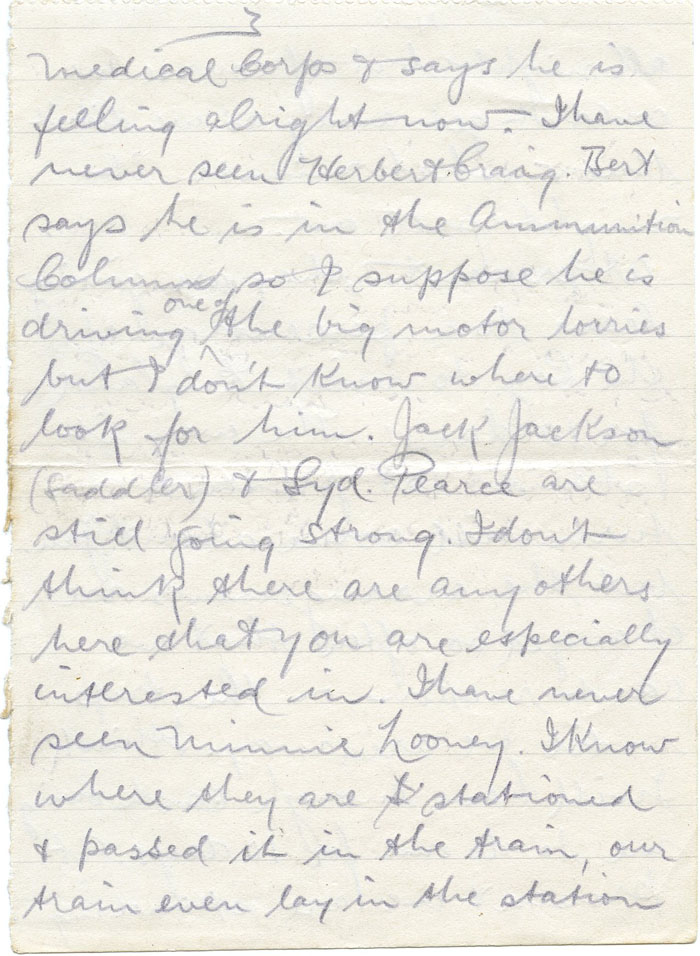 3
medical Corps & says he is
felling alright now. I have
never seen Herbert Craig. Bert
says he is in the Ammunition
Column so I suppose he is
driving one of the big motor lorries
but I don't know where to
look for him. Jack Jackson
(saddler) & Syd. Pearce are
still going strong. I don't
think there are any others
here that you are especially
interested in. I have never
seen Minnie Looney. I know
where they are stationed
& passed it in the train, our
train even lay in the station